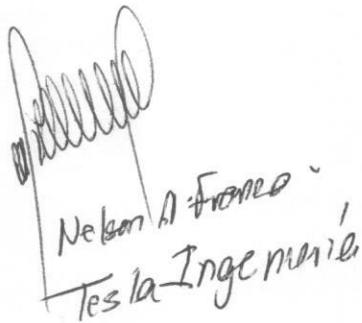 Nelson A. Franco
Tesla Ingeniería